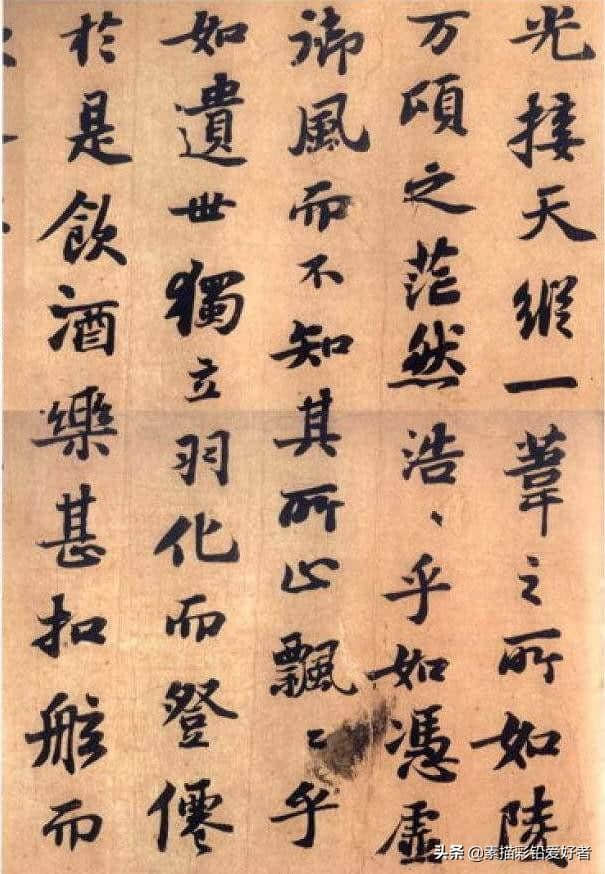 光接天縱一葦之所如陵
万頃之茫然浩〻乎如憑虛
御風而不知其所止飄〻乎
如遺世獨立羽化而登僊
於是飲酒樂甚扣舷而
头条 @素描彩铅爱好者